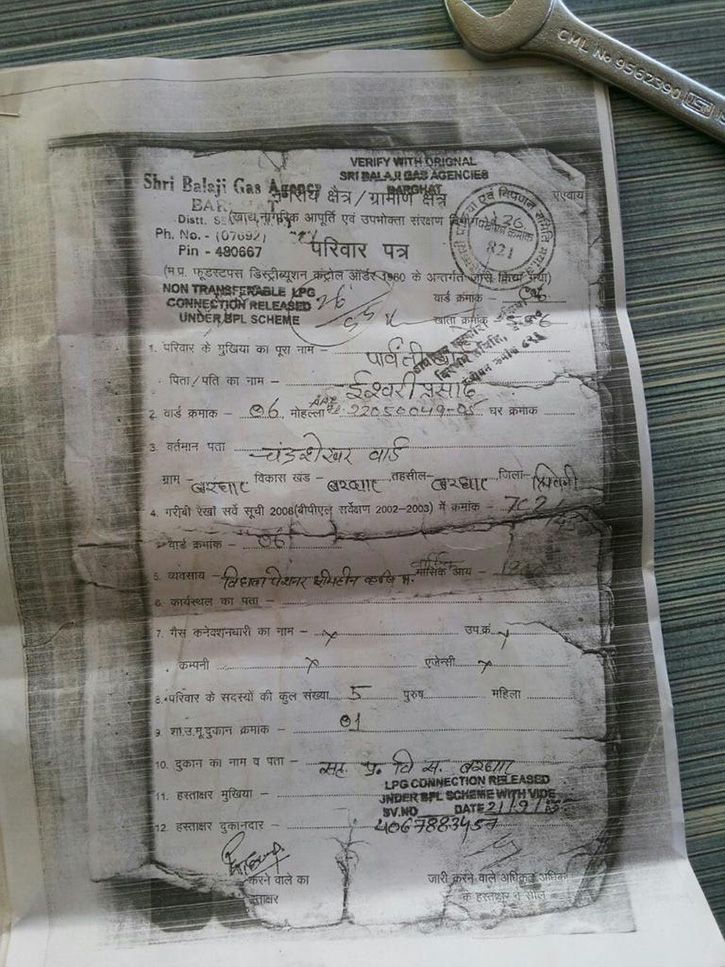 CML No 9562390
VERIFY WITH ORIGNAL
SRI BALAJI GAS AGENCIES
BARGHAT
Shri Balaji Gas Agency
नगरीय क्षेत्र/ग्रामीण क्षेत्र
Distt.
(खाद्य, नागरिक आपूर्ति एवं उपभोक्ता संरक्षण
Ph. No. - (07692)
821
Pin - 480667
परिवार पत्र
(म.प्र. फूडस्टफ्स डिस्ट्रीब्यूशन कंट्रोल ऑर्डर 1960 के अन्तर्गत जारी किया गया)
NON TRANSFERABLE LPG
CONNECTION RELEASED
UNDER BPL SCHEME
वार्ड क्रमांक - 06
खाता क्रमांक
1. परिवार के मुखिया का पूरा नाम - पार्वती
पिता/पति का नाम - ईश्वरी प्रसाद
2. वार्ड क्रमांक - 06 मोहल्ला 22050049-05 घर क्रमांक
3. वर्तमान पता चंद्रशेखर वार्ड
ग्राम - बरघाट विकास खंड - बरघाट तहसील - बरघाट जिला - सिवनी
4. गरीबी रेखा सर्वे सूची 2006(बीपीएल सर्वेक्षण 2002-2003) में क्रमांक - 702
वार्ड क्रमांक - 06
5. व्यवसाय - विधवा पेंशनर भूमिहीन कृषि म. मासिक आय -
6. कार्यस्थल का पता -
7. गैस कनेक्शनधारी का नाम - x उप.क्रं. x
कम्पनी x एजेन्सी x
8. परिवार के सदस्यों की कुल संख्या 5 पुरुष महिला
9. शा.उ.मू.दुकान क्रमांक - 01
10. दुकान का नाम व पता - सह. प्र. वि स. बरघाट
LPG CONNECTION RELEASED
11. हस्ताक्षर मुखिया -
UNDER BPL SCHEME WITH VIDE
SV.NO DATE 21/9/
12. हस्ताक्षर दुकानदार -
करने वाले का
जारी करने वाले अधिकृत
के हस्ताक्षर व सील